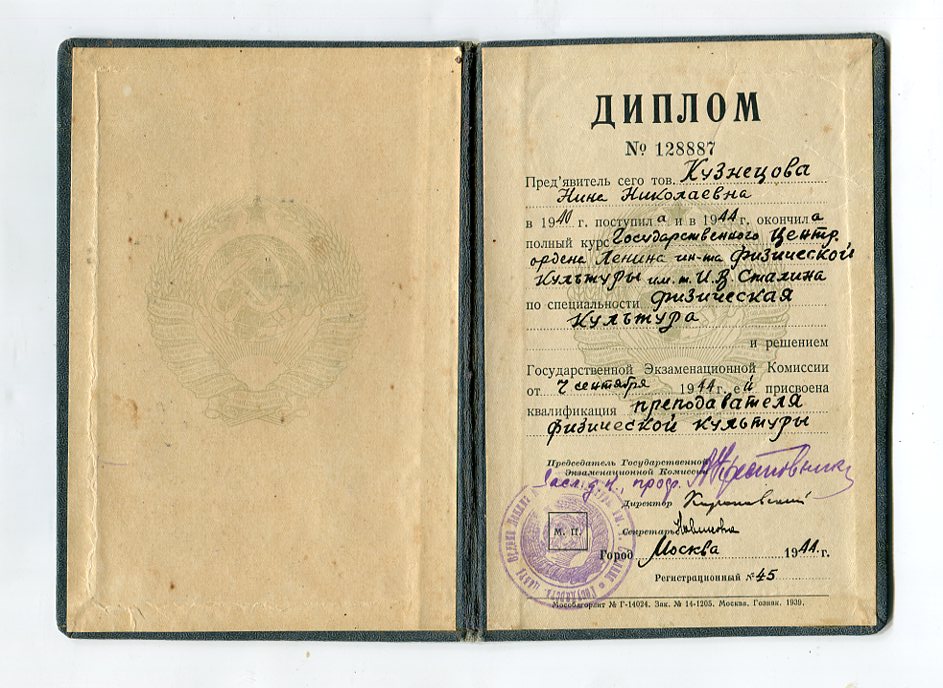 ДИПЛОМ
№ 128887
Пред'явитель сего тов. Кузнецова
Нина Николаевна
в 1940 г. поступила и в 1944 г. окончила
полный курс Государственного Центр.
ордена Ленина ин-та физической
культуры им. т. И. В. Сталина
по специальности физическая
культура
и решением
Государственной Экзаменационной Комиссии
от 7 сентября 1944 г. ей присвоена
квалификация преподавателя
физической культуры
Председатель Государственной
Экзаменационной Комиссии
Засл. д. н., проф.
Директор
Секретарь
М. П.
Город Москва 1944 г.
Регистрационный № 45
Мособлгорлит № Г-14024. Зак. № 14-1205. Москва. Гознак. 1939.